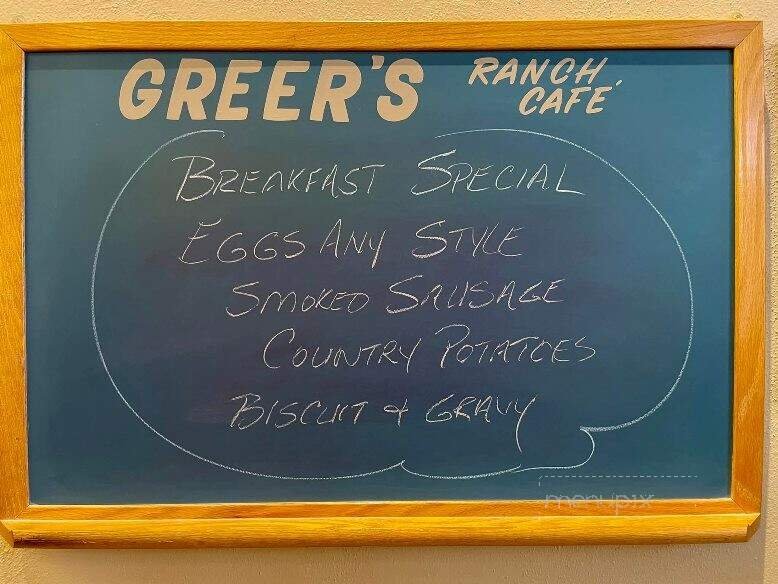 GREER'S RANCH CAFÉ
BREAKFAST SPECIAL
EGGS ANY STYLE
SMOKED SAUSAGE
COUNTRY POTATOES
BISCUIT & GRAVY
menupix